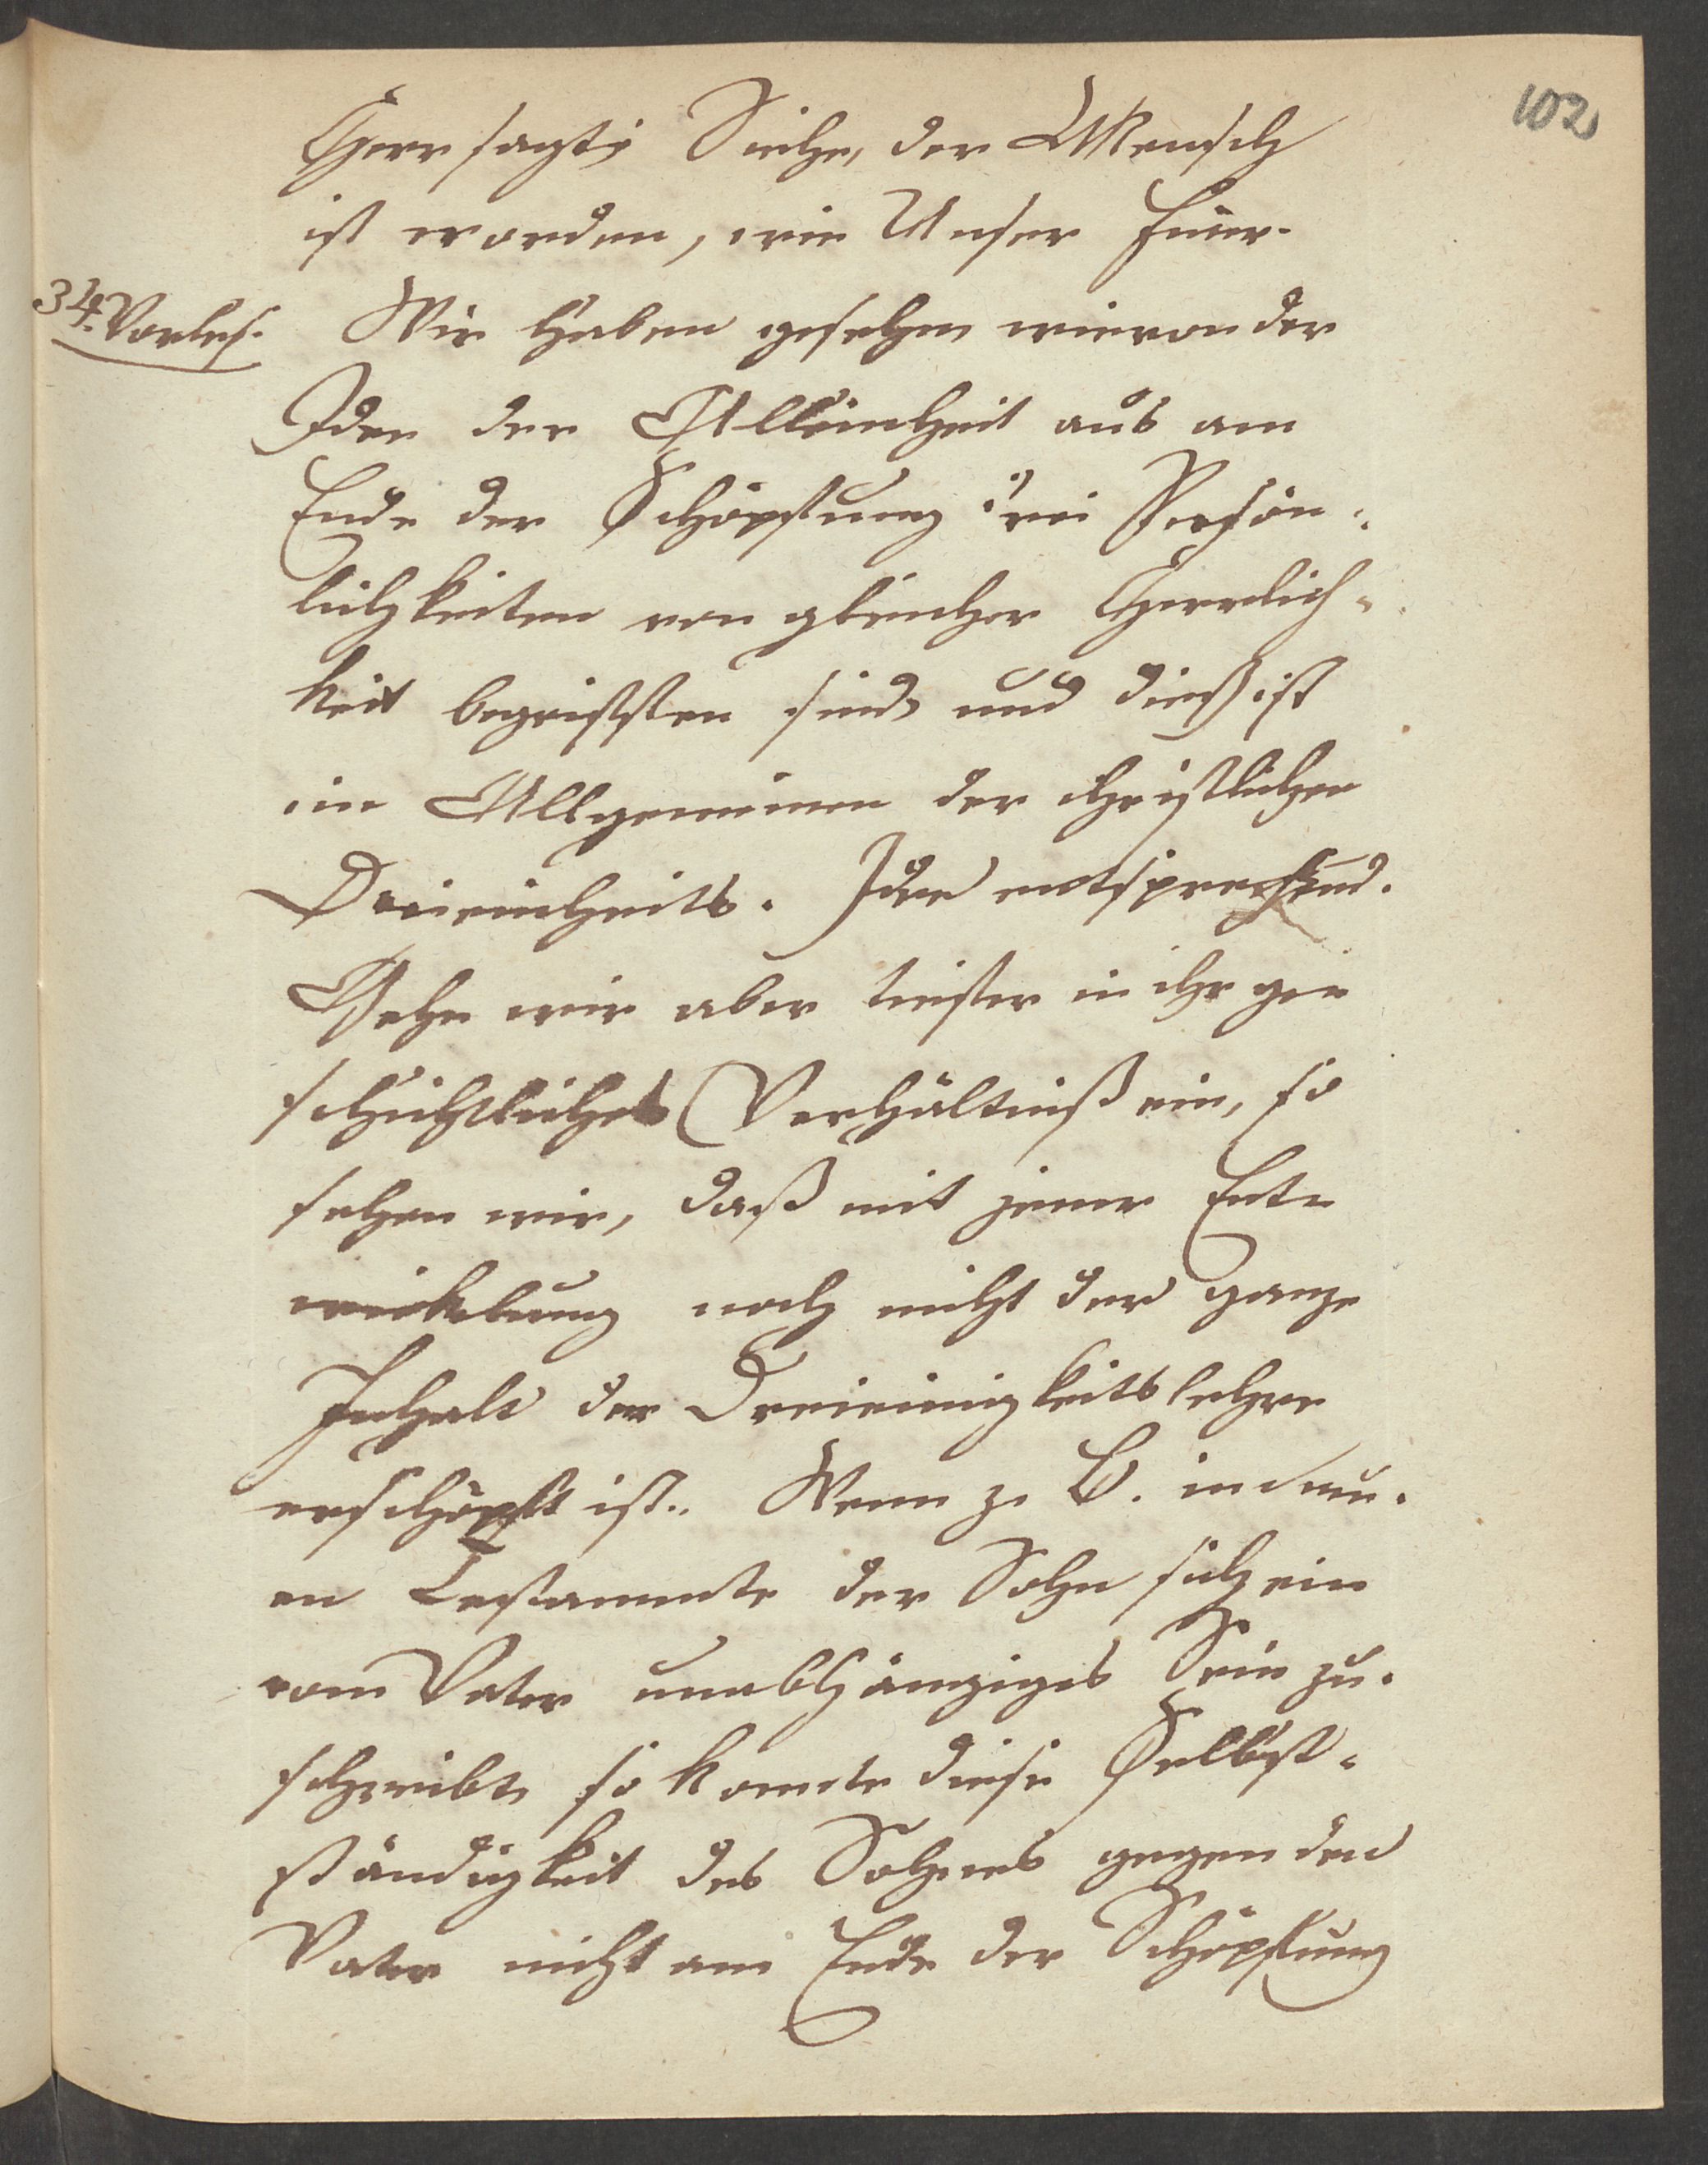 102
Herr sagt: Siehe, der Mensch
ist worden, wie Unser Einer.
34. Vorles. Wir haben gesehen wie von der
Idee der Alleinheit aus am
Ende der Schöpfung drei Persön-
lichkeiten von gleicher Herrlich-
keit begriffen sind, und dieß ist
im Allgemeinen der christlichen
Dreieinheits-Idee entsprechend.
Gehn wir aber tiefer in ihr ge-
schichtliches Verhältniß ein, so
sehen wir, daß mit jener Ent-
wickelung noch nicht der ganze
Inhalt der Dreieinigkeitslehre
erschöpft ist. Wenn z. B. in neu-
en Testamente der Sohn sich ein
vom Vater unabhängiges Sein zu-
schreibt, so konnte diese Selbst-
ständigkeit des Sohnes gegen den
Vater nicht am Ende der Schöpfung